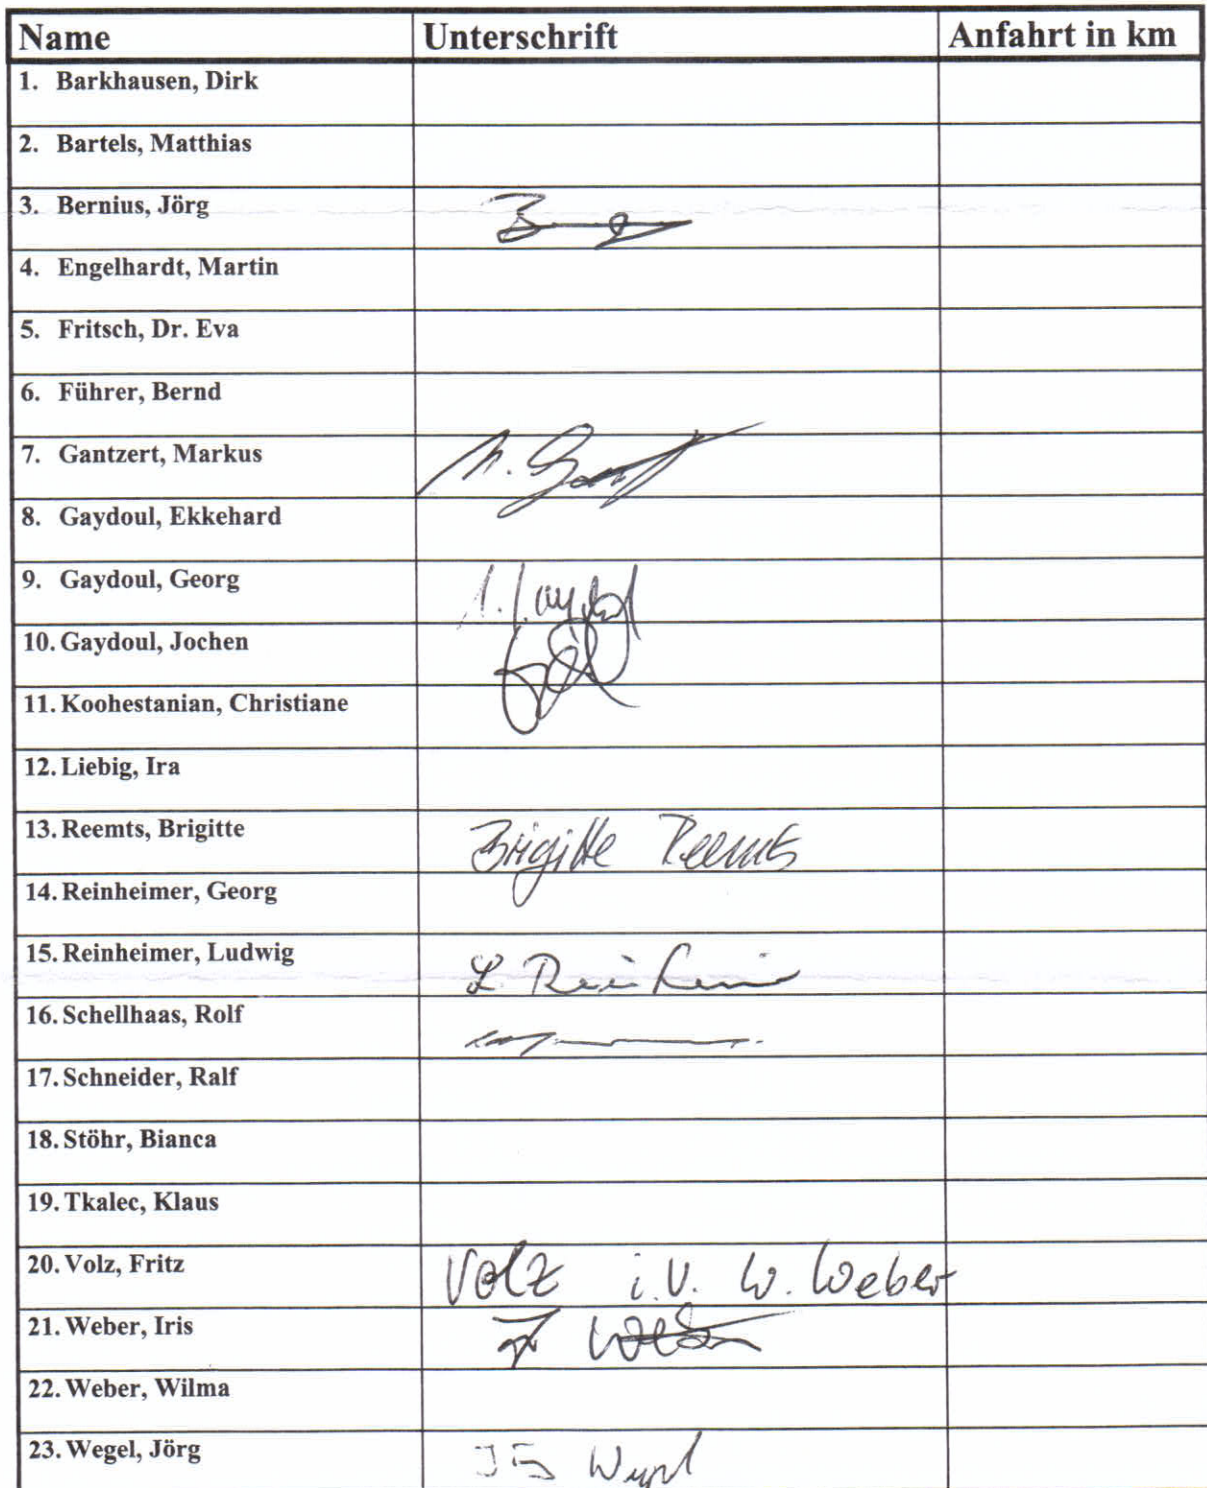 Name Unterschrift Anfahrt in km
1. Barkhausen, Dirk
2. Bartels, Matthias
3. Bernius, Jörg
4. Engelhardt, Martin
5. Fritsch, Dr. Eva
6. Führer, Bernd
7. Gantzert, Markus
8. Gaydoul, Ekkehard
9. Gaydoul, Georg
10. Gaydoul, Jochen
11. Koohestanian, Christiane
12. Liebig, Ira
13. Reemts, Brigitte Brigitte Reemts
14. Reinheimer, Georg
15. Reinheimer, Ludwig
16. Schellhaas, Rolf
17. Schneider, Ralf
18. Stöhr, Bianca
19. Tkalec, Klaus
20. Volz, Fritz Volz i.V. W. Weber
21. Weber, Iris
22. Weber, Wilma
23. Wegel, Jörg